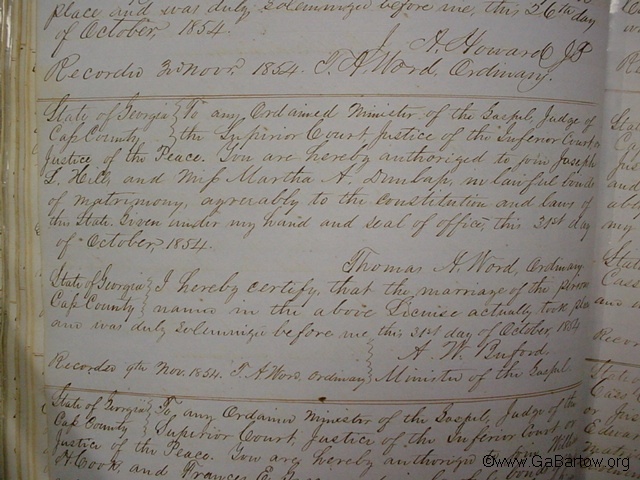 place and was duly Solemnized before me, this 26th day
of October, 1854.
J. A. Howard JP
Recorded 3d Nov. 1854. T. A. Word, Ordinary.
State of Georgia } To any Ordained Minister of the Gospel, Judge of
Cass County } the Superior Court, Justice of the Inferior Court or
Justice of the Peace. You are hereby authorized to join Joseph
L. Hill, and Miss Martha A. Dunlap, in lawful bonds
of matrimony, agreeably to the constitution and laws of
this State. Given under my hand and seal of office, this 31st day
of October, 1854.
Thomas A. Word, Ordinary
State of Georgia } I hereby certify, that the marriage of the persons
Cass County } named in the above License actually took place
and was duly Solemnized before me this 31st day of October, 1854
A. W. Buford,
Recorded 9th Nov. 1854. T. A. Word, Ordinary } Minister of the Gospel.
State of Georgia } To any Ordained Minister of the Gospel, Judge of the
Cass County } Superior Court, Justice of the Inferior Court or
Justice of the Peace. You are hereby authorized to join
H Cook, and Frances E.
©www.GaBartow.org